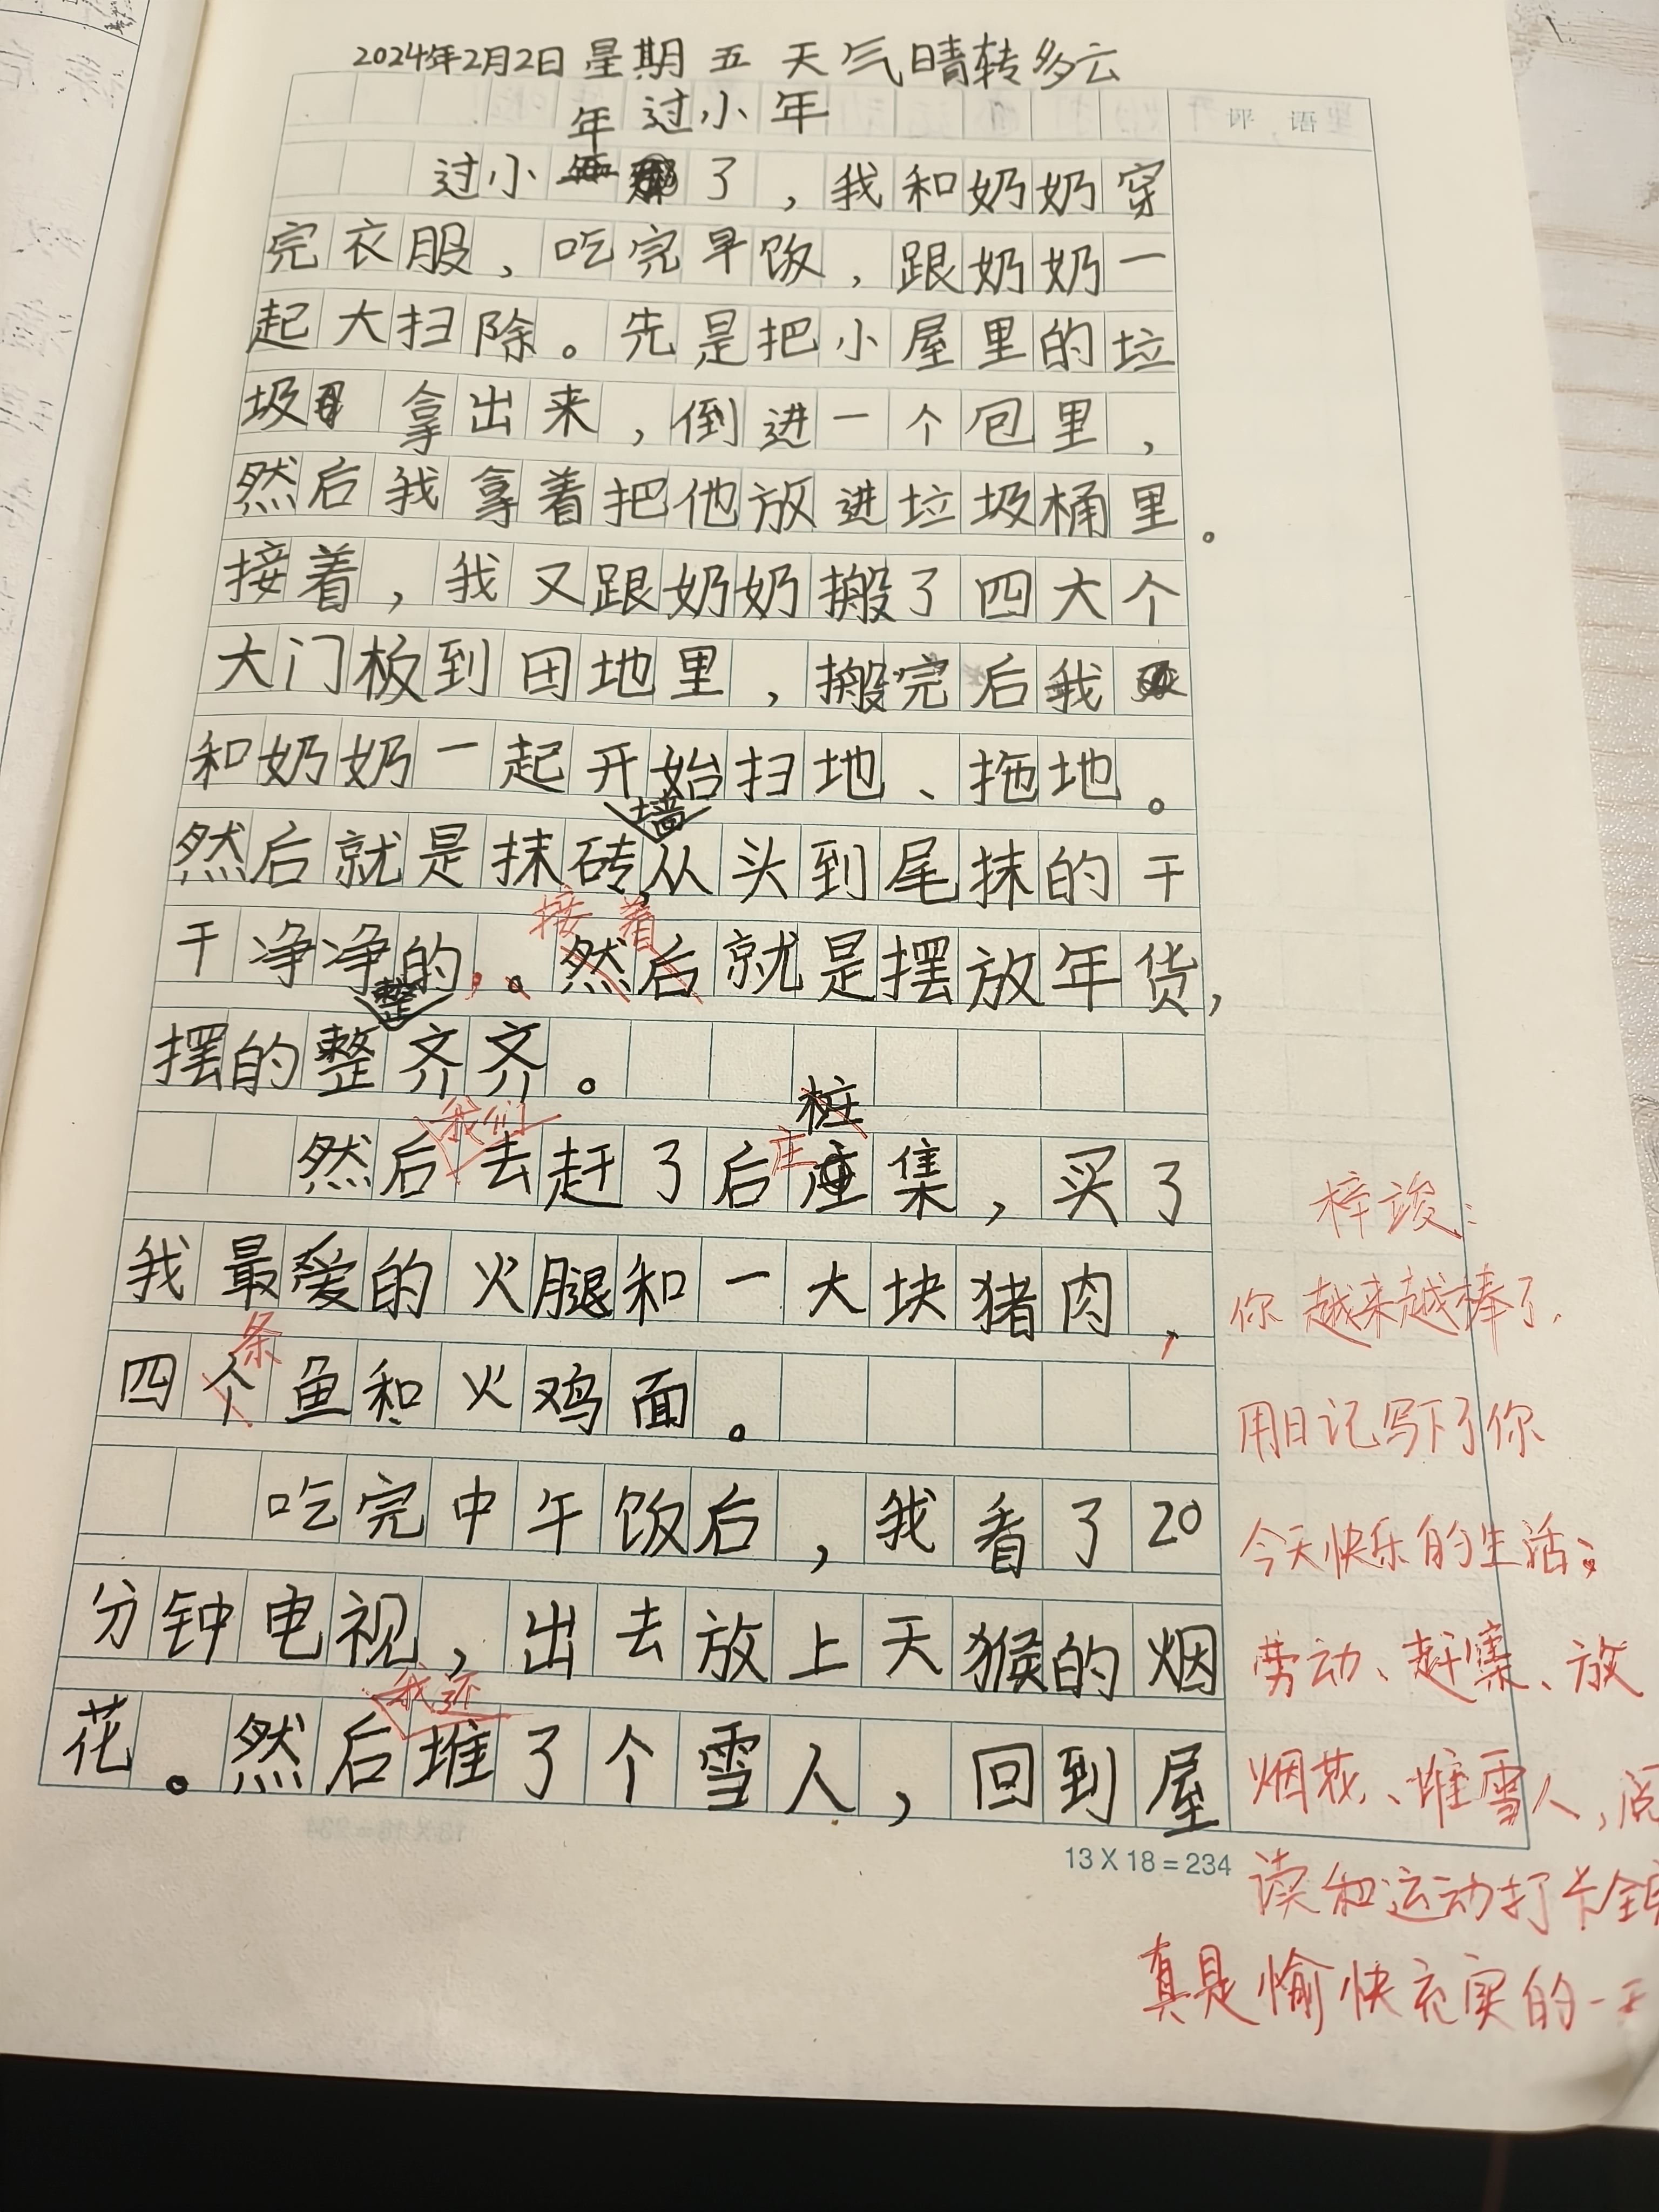 2024年2月2日 星期五 天气晴转多云
过小年
过小年了，我和奶奶穿
完衣服，吃完早饭，跟奶奶一
起大扫除。先是把小屋里的垃
圾拿出来，倒进一个包里，
然后我拿着把他放进垃圾桶里。
接着，我又跟奶奶搬了四大个
大门板到田地里，搬完后我
和奶奶一起开始扫地、拖地。
然后就是抹砖墙，从头到尾抹的干
干净净的，。接着然后就是摆放年货，
摆的整整齐齐。
然后我们去赶了后庄桩集，买了
我最爱的火腿和一大块猪肉，
四条个鱼和火鸡面。
吃完中午饭后，我看了20
分钟电视，出去放上天猴的烟
花。然后我还堆了个雪人，回到屋
13 X 18 = 234
评语
梓竣：
你越来越棒了，
用日记写下了你
今天快乐的生活：
劳动、赶集、放
烟花、堆雪人，阅
读和运动打卡全
真是愉快充实的一天